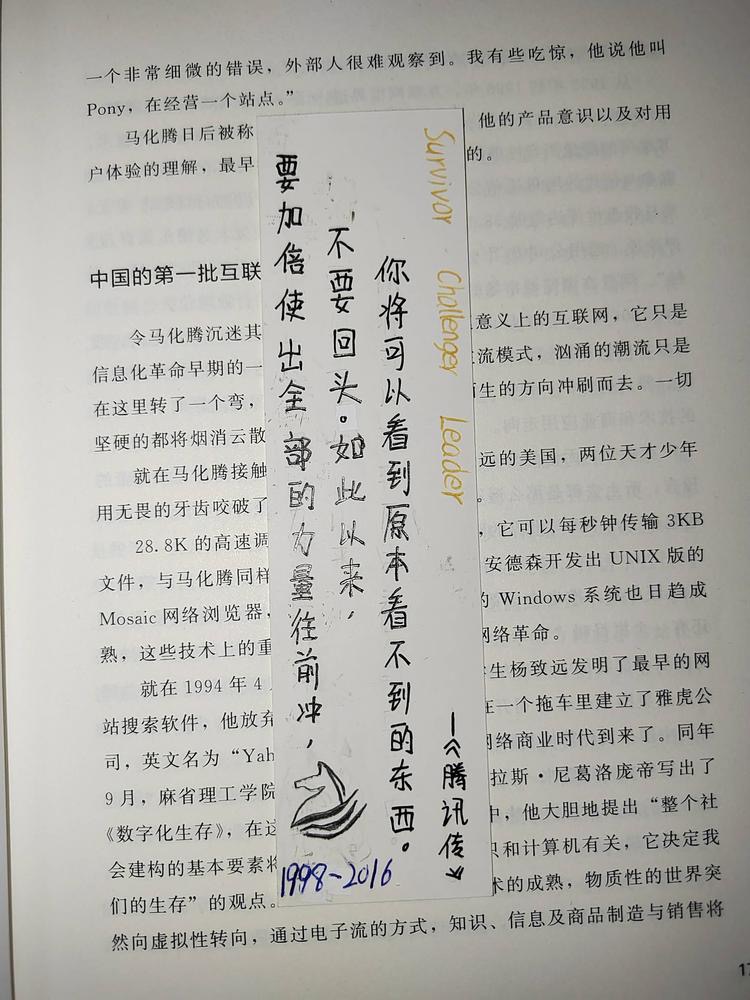 一个非常细微的错误，外部人很难观察到。我有些吃惊，他说他叫
Pony，在经营一个站点。”
马化腾日后被称
他的产品意识以及对用
户体验的理解，最早
的。
中国的第一批互联
令马化腾沉迷其
意义上的互联网，它只是
信息化革命早期的一
流模式，汹涌的潮流只是
在这里转了一个弯，
生的方向冲刷而去。一切
坚硬的都将烟消云散
就在马化腾接触
远的美国，两位天才少年
用无畏的牙齿咬破了
28.8K 的高速调
，它可以每秒钟传输 3KB
文件，与马化腾同样
安德森开发出 UNIX 版的
Mosaic 网络浏览器，
Windows 系统也日趋成
熟，这些技术上的重
网络革命。
就在 1994 年 4
生杨致远发明了最早的网
站搜索软件，他放弃
在一个拖车里建立了雅虎公
司，英文名为“Yah
网络商业时代到来了。同年
9 月，麻省理工学院
拉斯·尼葛洛庞帝写出了
《数字化生存》，在这
中，他大胆地提出“整个社
会建构的基本要素将
识和计算机有关，它决定我
们的生存”的观点。
术的成熟，物质性的世界突
然向虚拟性转向，通过电子流的方式，知识、信息及商品制造与销售将
要加倍使出全部的力量往前冲，
不要回头。如此以来，
你将可以看到原本看不到的东西。
Survivor Challenger Leader
—《腾讯传》
1998-2016